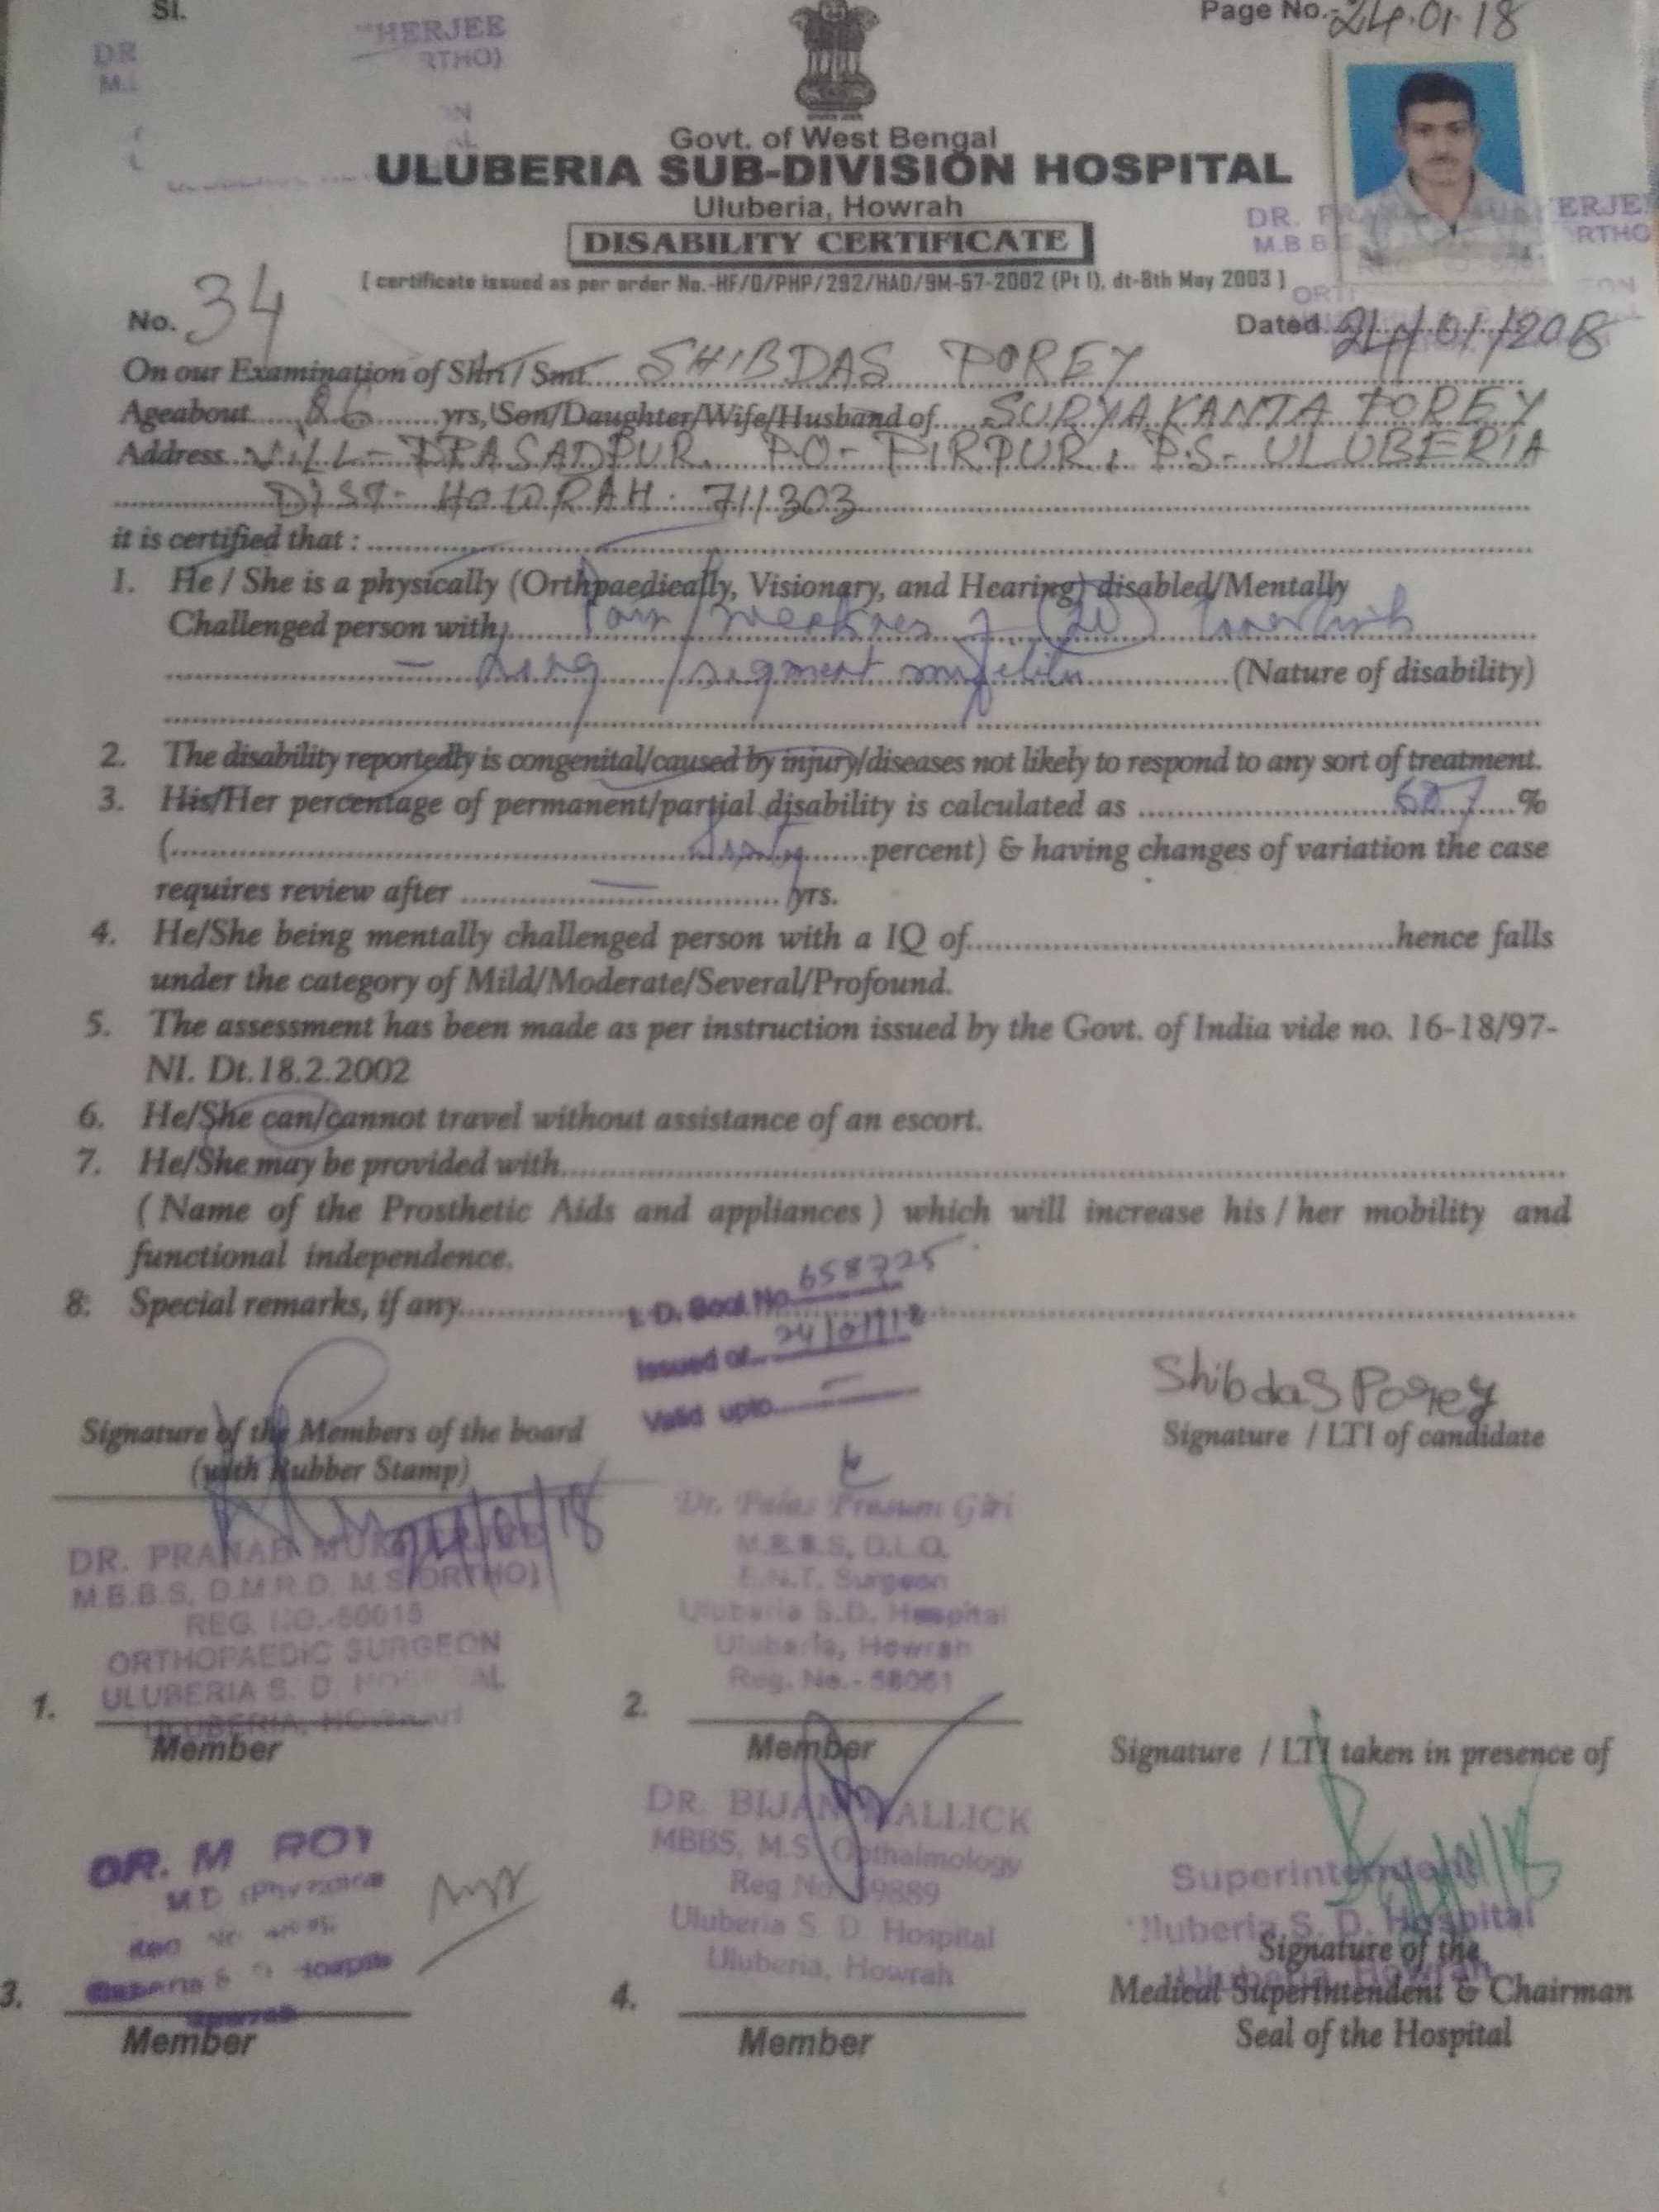 Sl.
Page No.- 24.01.18
HERJEE
DR
RTHO)
M.
Govt. of West Bengal
ULUBERIA SUB-DIVISION HOSPITAL
Uluberia, Howrah
DISABILITY CERTIFICATE
[ certificate issued as per order No.-HF/O/PHP/292/HAD/9M-57-2002 (Pt I), dt-8th May 2003 ]
DR. ERJEE
M.B.B RTHO
No. 34
Dated 24/01/2018
On our Examination of Shri / Smt. SHIBDAS POREY
Ageabout yrs, Son/Daughter/Wife/Husband of SURYAKANTA POREY
Address VILL- PRASADPUR, PO- PIRPUR, P.S- ULUBERIA
DIST- HOWRAH. 711303
it is certified that :
1. He / She is a physically (Orthpaedically, Visionary, and Hearing) disabled/Mentally
Challenged person with weakness of
long segment (Nature of disability)
2. The disability reportedly is congenital/caused by injury/diseases not likely to respond to any sort of treatment.
3. His/Her percentage of permanent/partial disability is calculated as %
( percent) & having changes of variation the case
requires review after — yrs.
4. He/She being mentally challenged person with a IQ of hence falls
under the category of Mild/Moderate/Several/Profound.
5. The assessment has been made as per instruction issued by the Govt. of India vide no. 16-18/97-
NI. Dt.18.2.2002
6. He/She can/cannot travel without assistance of an escort.
7. He/She may be provided with
( Name of the Prosthetic Aids and appliances ) which will increase his / her mobility and
functional independence.
8. Special remarks, if any
I. D. Book No 658725
Issued of 24/01/18
Valid upto —
Shibdas Porey
Signature / LTI of candidate
Signature of the Members of the board
(with Rubber Stamp)
24/01/18
DR. PRANAB MUKHERJEE
M.B.B.S, D.M.R.D, M.S(ORTHO)
REG. NO.-60015
ORTHOPAEDIC SURGEON
ULUBERIA S. D. HOSPITAL
ULUBERIA, HOWRAH
1. Member
Dr. Palas Prasum Giri
M.B.B.S, D.L.O.
E.N.T. Surgeon
Uluberia S.D. Hospital
Uluberia, Howrah
Reg. No.- 58061
2. Member
Signature / LTI taken in presence of
DR. M ROY
M D
Uluberia S D Hospital
Howrah
3. Member
DR. BIJAN MALLICK
MBBS, M.S. Opthalmology
Reg No. 9889
Uluberia S. D. Hospital
Uluberia, Howrah
4. Member
Superintendent
Uluberia S. D. Hospital
Uluberia, Howrah
Signature of the
Medical Superintendent & Chairman
Seal of the Hospital